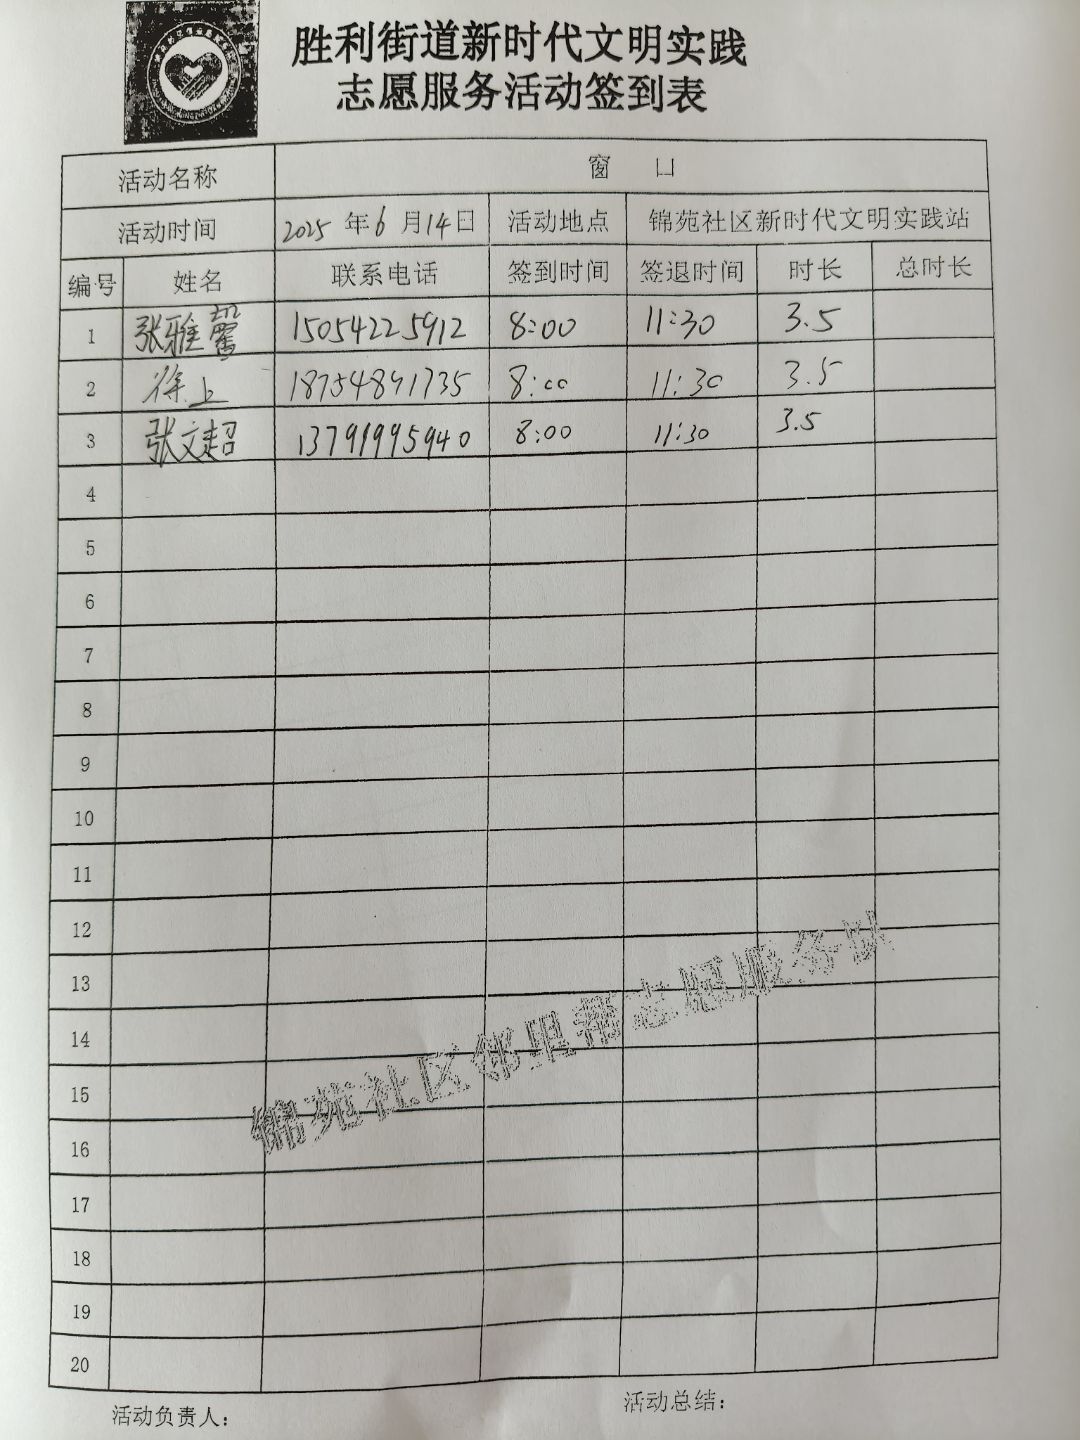 胜利街道新时代文明实践
志愿服务活动签到表
活动名称 窗 口
活动时间 2025 年 6 月 14 日 活动地点 锦苑社区新时代文明实践站
编号 姓名 联系电话 签到时间 签退时间 时长 总时长
1 张雅馨 15054225912 8:00 11:30 3.5
2 徐上 18754841735 8:00 11:30 3.5
3 张文超 13791995940 8:00 11:30 3.5
4
5
6
7
8
9
10
11
12
13
14
15
16
17
18
19
20
锦苑社区邻里帮志愿服务队
活动负责人：
活动总结：